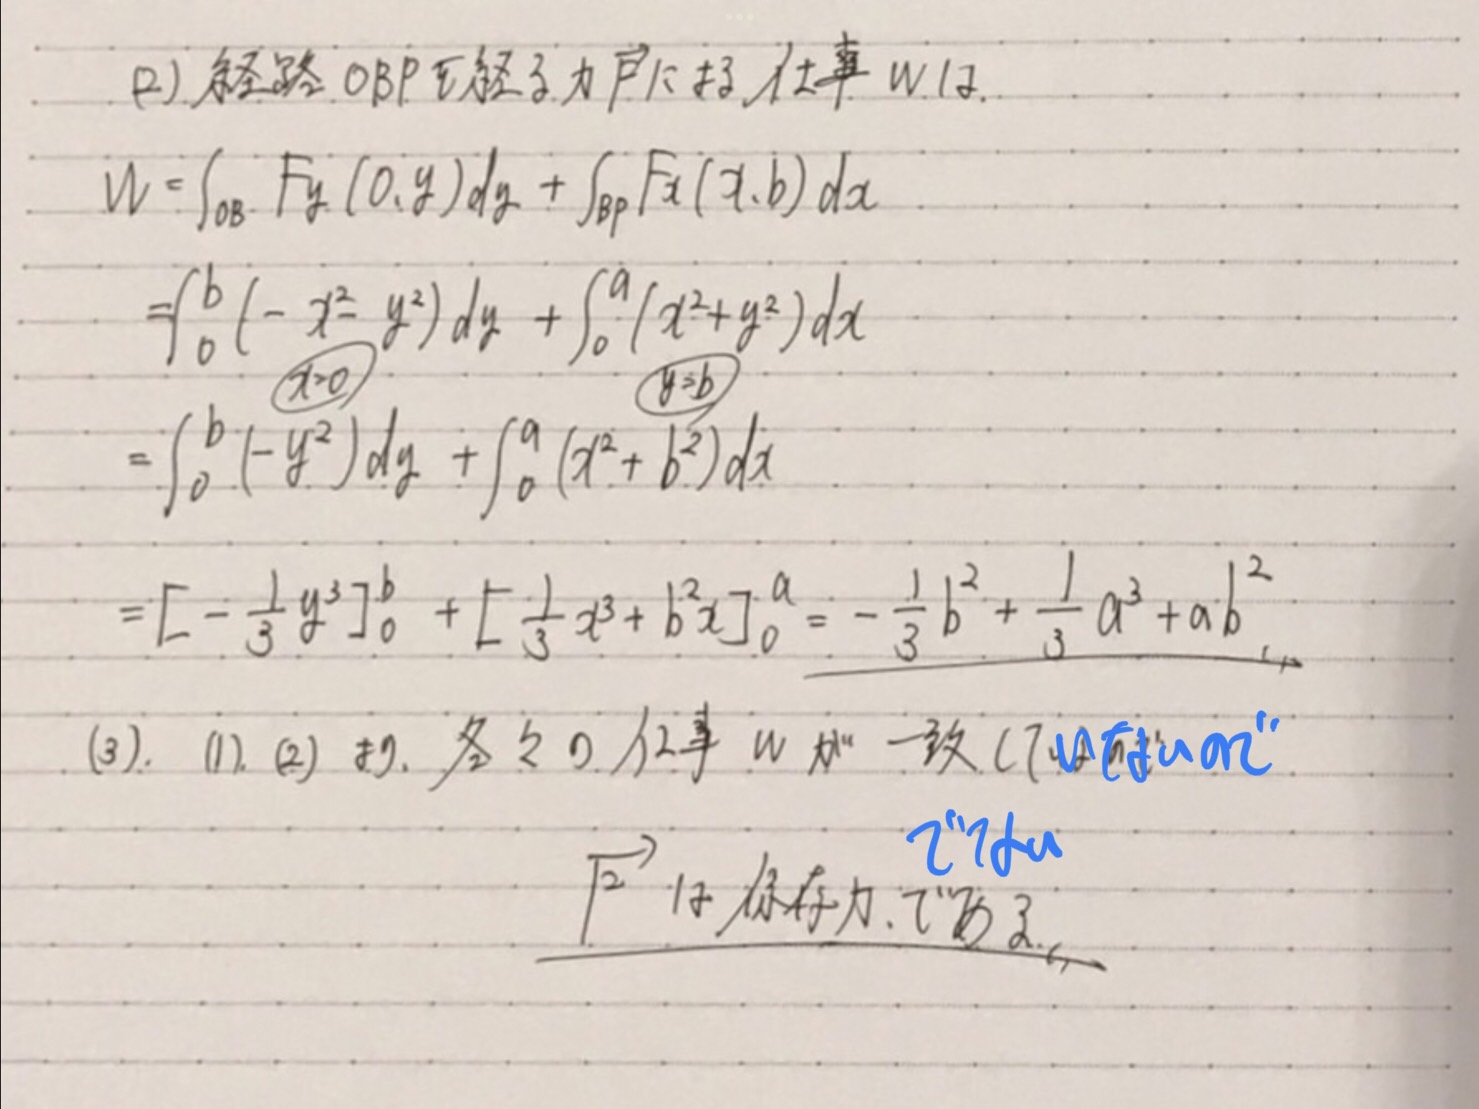 (2) 経路OBPを経る力F→による仕事Wは、
W = ∫OB Fy(0,y)dy + ∫BP Fx(x,b)dx
= ∫₀ᵇ(-x²-y²)dy + ∫₀ᵃ(x²+y²)dx
x=0 y=b
= ∫₀ᵇ(-y²)dy + ∫₀ᵃ(x²+b²)dx
= [-1/3 y³]₀ᵇ + [1/3 x³+b²x]₀ᵃ = -1/3 b² + 1/3 a³ + ab²
(3). (1).(2)より、各々の仕事Wが一致していないので
でない
F→は保存力である